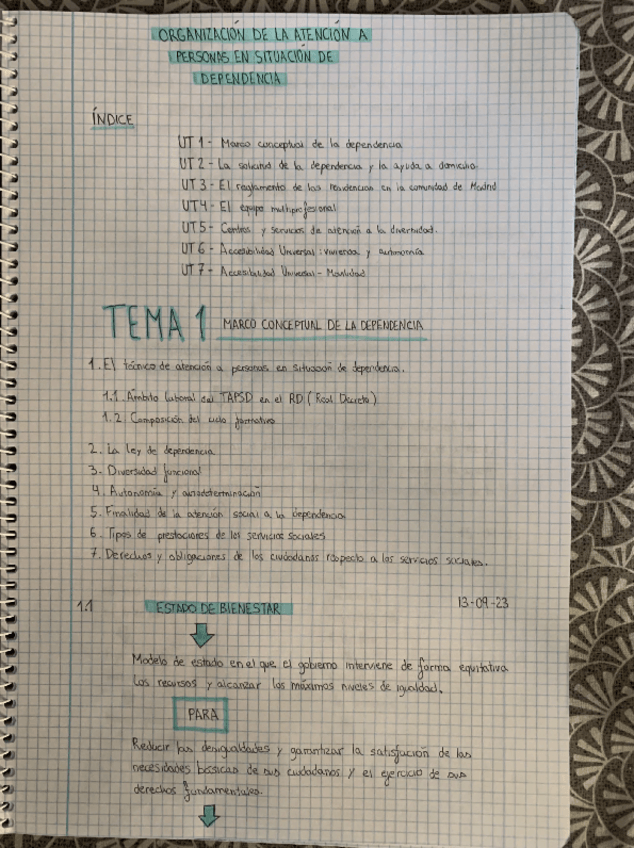 ORGANIZACIÓN DE LA ATENCIÓN A
PERSONAS EN SITUACIÓN DE
DEPENDENCIA
ÍNDICE
UT 1 - Marco conceptual de la dependencia
UT 2 - La solicitud de la dependencia y la ayuda a domicilio.
UT 3 - El reglamento de las residencias en la comunidad de Madrid
UT4 - El equipo multiprofesional
UT5 - Centros y servicios de atención a la diversidad.
UT 6 - Accesibilidad Universal: vivienda y autonomía
UT 7 - Accesibilidad Universal - Movilidad
TEMA 1 MARCO CONCEPTUAL DE LA DEPENDENCIA
1. El técnico de atención a personas en situación de dependencia.
1.1. Ámbito laboral del TAPSD en el RD (Real Decreto)
1.2. Composición del ciclo formativo
2. La ley de dependencia
3- Diversidad funcional
4. Autonomía y autodeterminación
5. Finalidad de la atención social a la dependencia
6. Tipos de prestaciones de los servicios sociales
7. Derechos y obligaciones de los ciudadanos respecto a los servicios sociales.
1.1 ESTADO DE BIENESTAR 13-09-23
Modelo de estado en el que el gobierno interviene de forma equitativa
los recursos y alcanzar los máximos niveles de igualdad.
PARA
Reducir las desigualdades y garantizar la satisfacción de las
necesidades básicas de sus ciudadanos y el ejercicio de sus
derechos fundamentales.